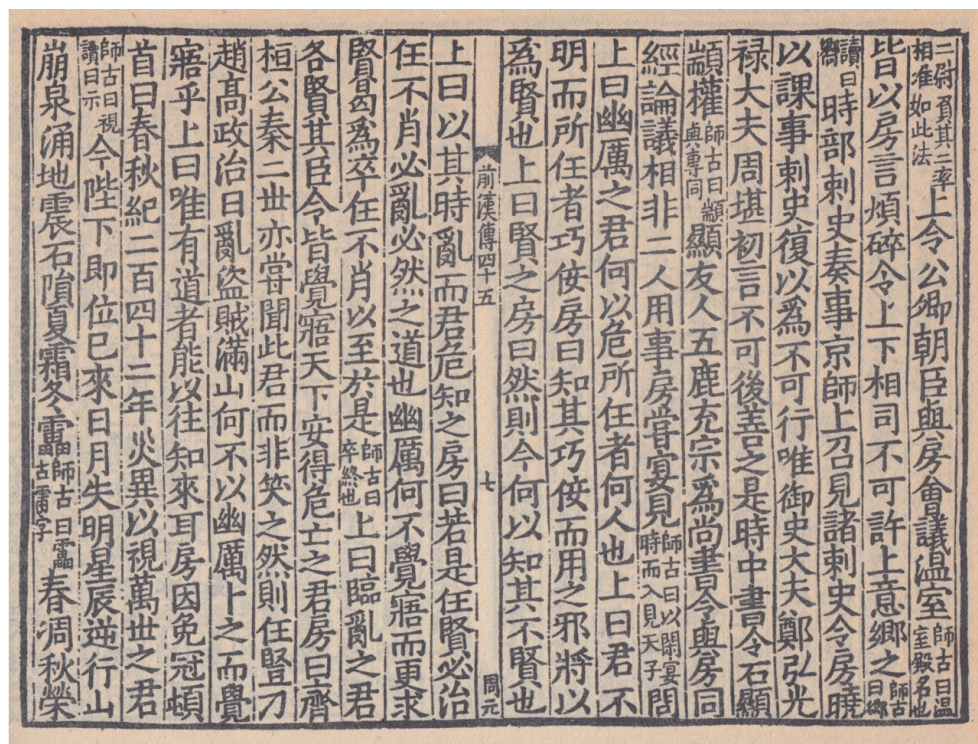 二尉負其二率
相准如此法
上令公卿朝臣與房會議溫室師古曰溫室殿名也
皆以房言煩碎令上下相司不可許上意鄉之師古曰鄉
讀曰嚮時部刺史奏事京師上召見諸刺史令房曉
以課事刺史復以爲不可行唯御史大夫鄭弘光
禄大夫周堪初言不可後善之是時中書令石顯
顓權師古曰顓與專同顯友人五鹿充宗爲尚書令與房同
經論議相非二人用事房甞宴見師古曰以閑宴時而入見天子問
上曰幽厲之君何以危所任者何人也上曰君不
明而所任者巧佞房曰知其巧佞而用之邪將以
爲賢也上曰賢之房曰然則今何以知其不賢也
前漢傳四十五
七
周元
上曰以其時亂而君危知之房曰若是任賢必治
任不肖必亂必然之道也幽厲何不覺寤而更求
賢曷爲卒任不肖以至於是師古曰卒終也上曰臨亂之君
各賢其臣令皆覺寤天下安得危亡之君房曰齊
桓公秦二丗亦甞聞此君而非笑之然則任豎刀
趙高政治日亂盗賊滿山何不以幽厲卜之而覺
寤乎上曰唯有道者能以往知來耳房因免冠頓
首曰春秋紀二百四十二年災異以視萬丗之君
師古曰視讀曰示今陛下即位已來日月失明星辰逆行山
崩泉涌地震石隕夏霜冬靁師古曰靁古雷字春凋秋榮